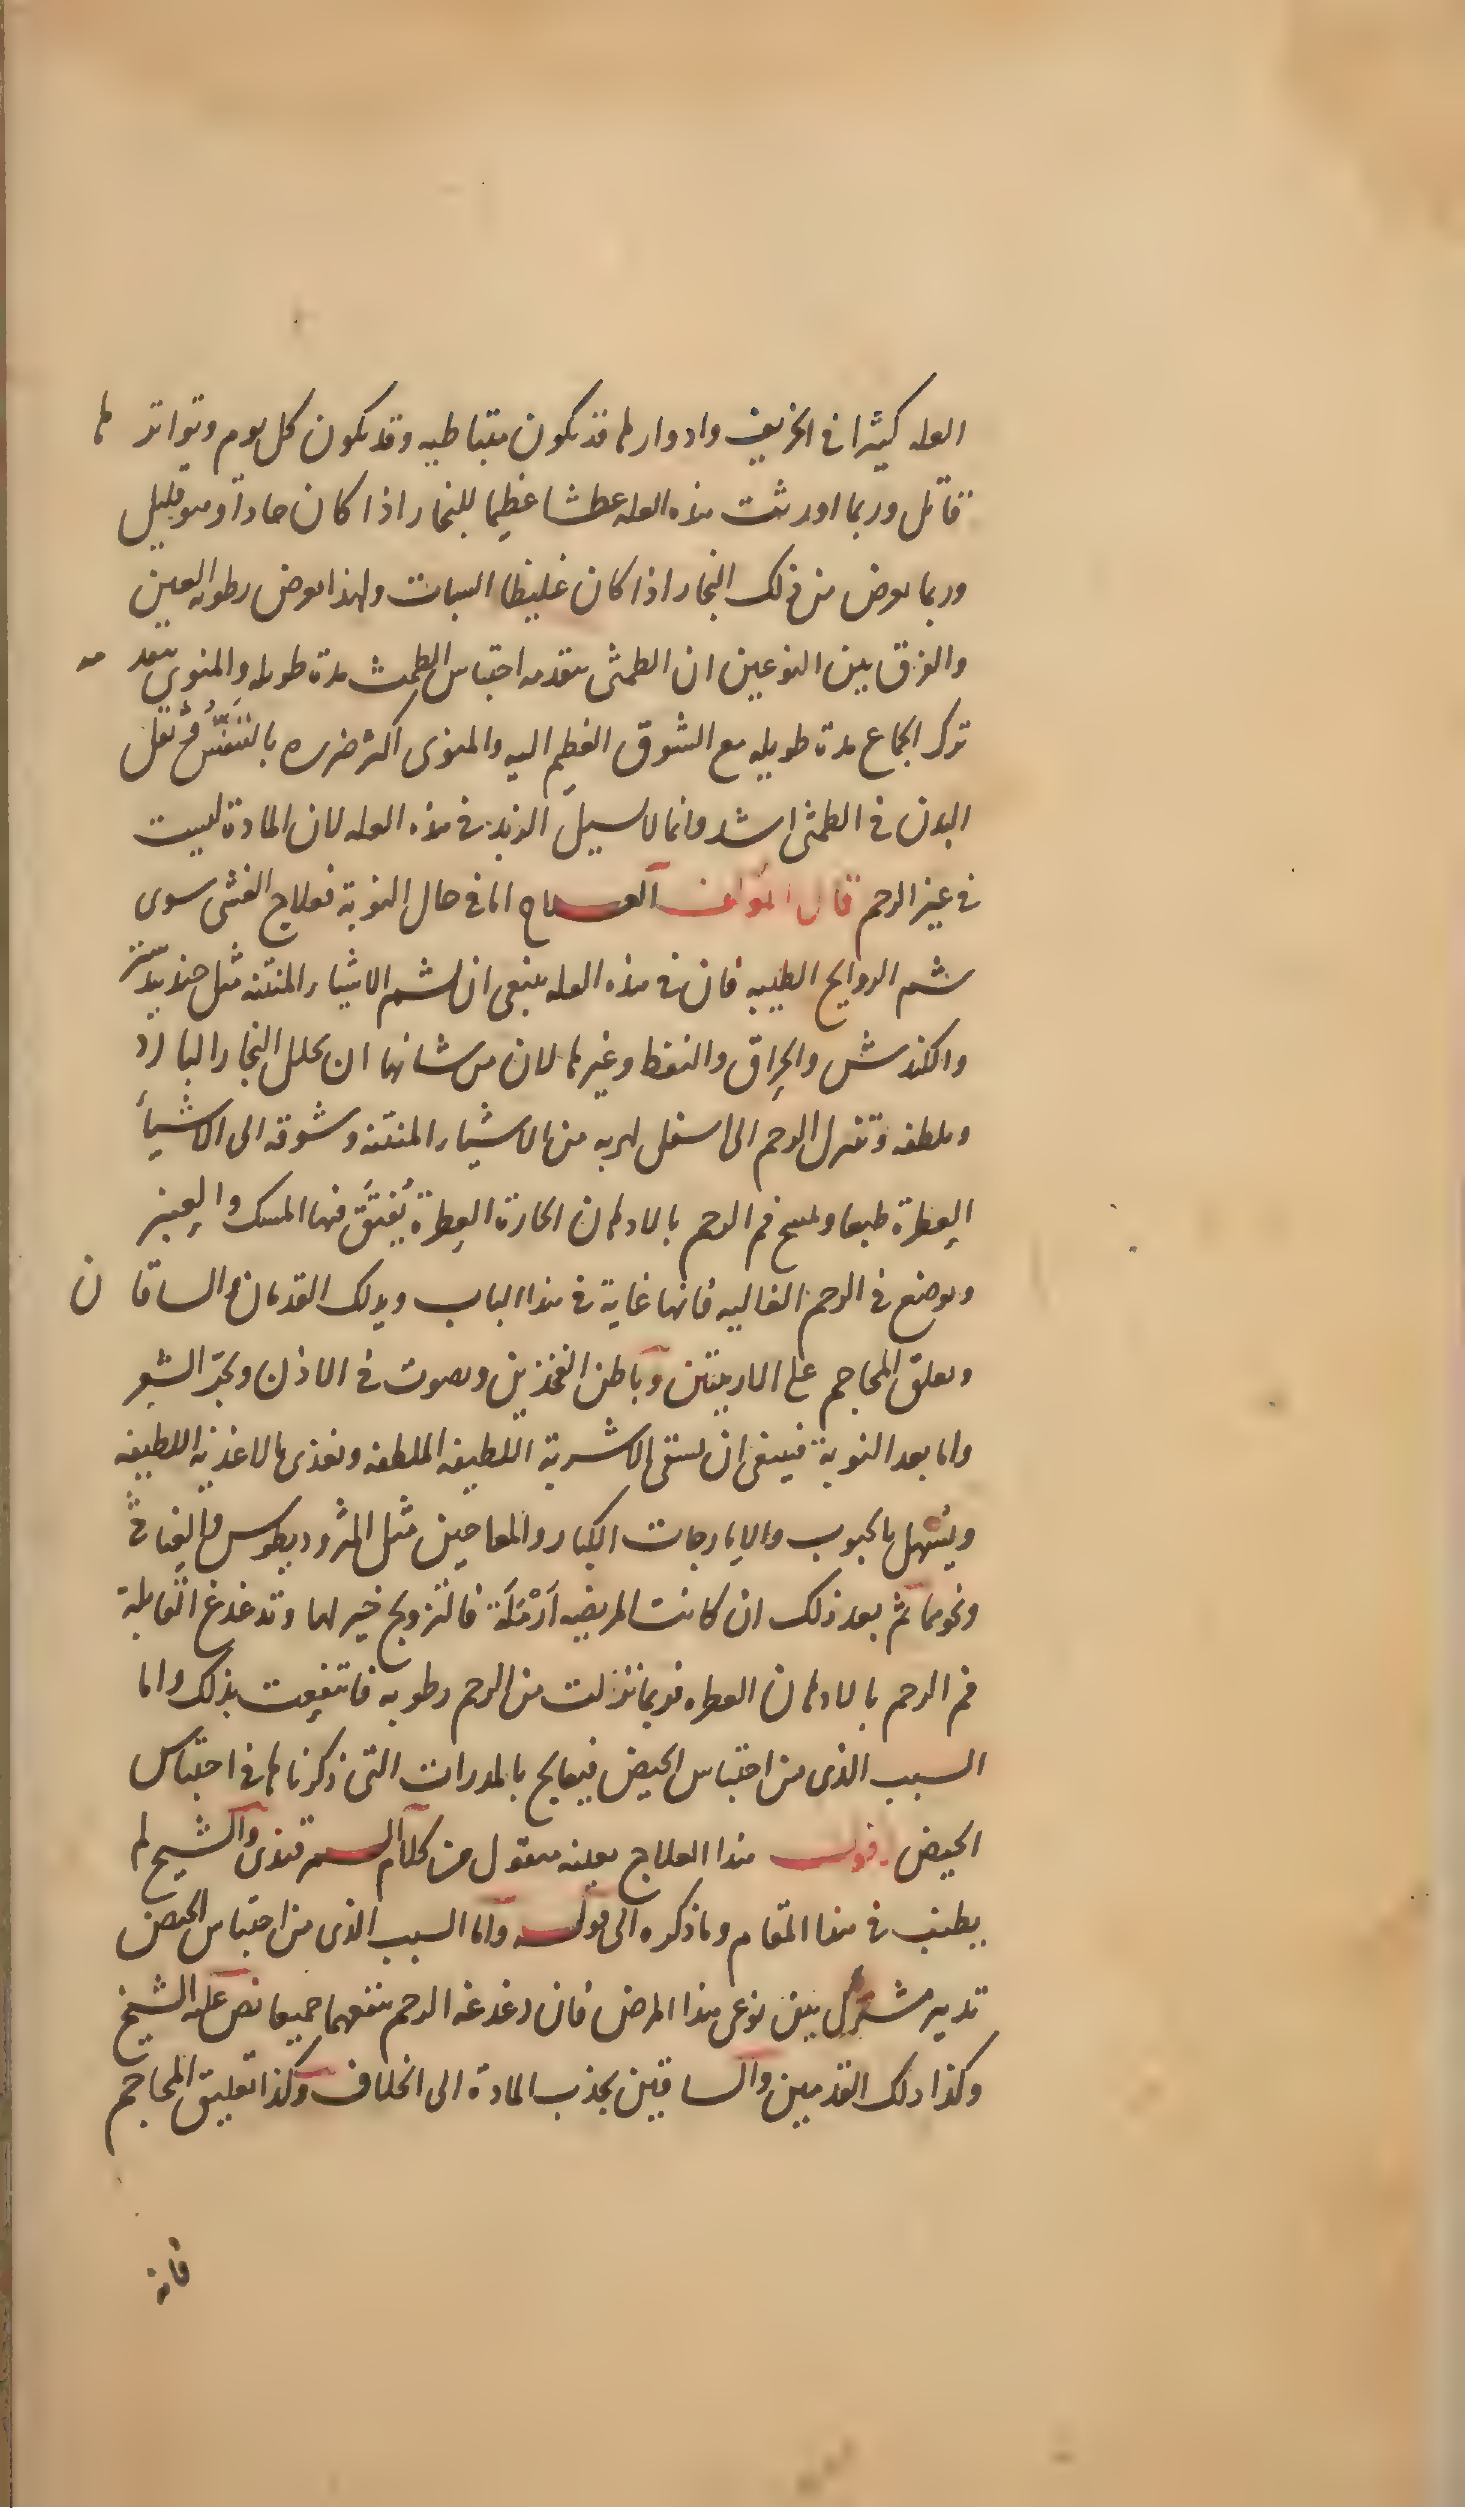 العله كثيرا فى الخريف وادوارها قد تكون متباطيه وقد تكون كل يوم وتواترها
قاتل وربما اورثت هذه العله عطشا عظيما للبخار اذا كان حادا وهو قليل
وربما يعرض من ذلك البخار اذا كان غليظا السبات ولهذا يعرض رطوبه العين
والفرق بين النوعين ان الطمثى يتقدمه احتباس الطمث مدة طويله والمنوى يتقدمه
ترك الجماع مدة طويله مع الشوق العظيم اليه والمنوى اكثر ضرره بالتنفس وثقل
البدن فى الطمثى اشد وانما لا يسيل الزبد فى هذه العله لان المادة ليست
فى غير الرحم قال المؤلف العلاج اما فى حال النوبة فعلاج الغشى سوى
شم الروايح الطيبه فان فى هذه العله ينبغى ان يشم الاشياء المنتنه مثل جندبيدستر
والكندش والحراق والنفط وغيرها لان من شانها ان يحلل البخار البارد
ويلطفه وتنزل الرحم الى اسفل لهربه من الاشياء المنتنه وشوقه الى الاشياء
العطرة طبعا ويمسح فم الرحم بالادهان الحارة العطرة يُفتَّق فيها المسك والعنبر
ويوضع فى الرحم الغاليه فانها غاية فى هذا الباب ويدلك القدمان والساقان
ويعلق المحاجم على الاربيتين وباطن الفخذين ويصوت فى الاذن ويجرّ الشعر
واما بعد النوبة فينبغى ان يسقى الاشربة اللطيفه الملطفه ويغذى بالاغذية اللطيفه
ويُسهل بالحبوب والايارجات الكبار والمعاجين مثل المثروديطوس والفيافى
ونحوهما ثم بعد ذلك ان كانت المريضه اَرْمَلَة فالتزويج خير لها وتدغدغ القابلة
فم الرحم بالادهان العطره فربما نزلت من الرحم رطوبه فانتفعت بذلك واما
السبب الذى من احتباس الحيض فيعالج بالمدرات التى ذكرناها فى احتباس
الحيض اقول هذا العلاج بعينه منقول من كلام السمرقندى والشيخ لم
يطنب فى هذا المقام وما ذكره الى قوله واما السبب الذى من احتباس الحيض
تدبير مشترك بين نوعى هذا المرض فان دغدغه الرحم ينفعهما جميعا نص عليه الشيخ
وكذا دلك القدمين والساقين بجذب المادة الى الخلاف وكذا تعليق المحاجم
فانه